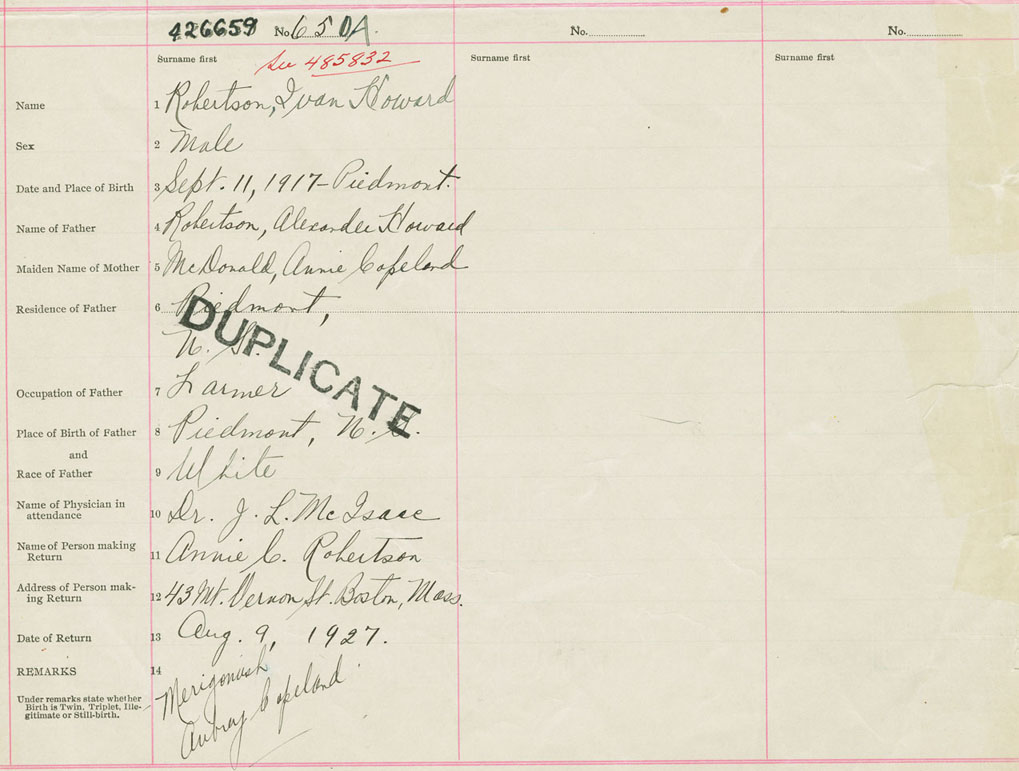 426659 No. 65 DA. No. No.
Surname first See 485832 Surname first Surname first
Name 1 Robertson, Ivan Howard
Sex 2 Male
Date and Place of Birth 3 Sept. 11, 1917 - Piedmont.
Name of Father 4 Robertson, Alexander Howard
Maiden Name of Mother 5 McDonald, Annie Copeland
Residence of Father 6 Piedmont,
N. S.
DUPLICATE
Occupation of Father 7 Farmer
Place of Birth of Father 8 Piedmont, N. S.
and
Race of Father 9 White
Name of Physician in
attendance 10 Dr. J. L. McIsaac
Name of Person making
Return 11 Annie C. Robertson
Address of Person mak-
ing Return 12 43 Mt. Vernon St. Boston, Mass.
Date of Return 13 Aug. 9, 1927.
REMARKS 14 Merigomish
Under remarks state whether
Birth is Twin, Triplet, Ille-
gitimate or Still-birth.
Aubrey Copeland